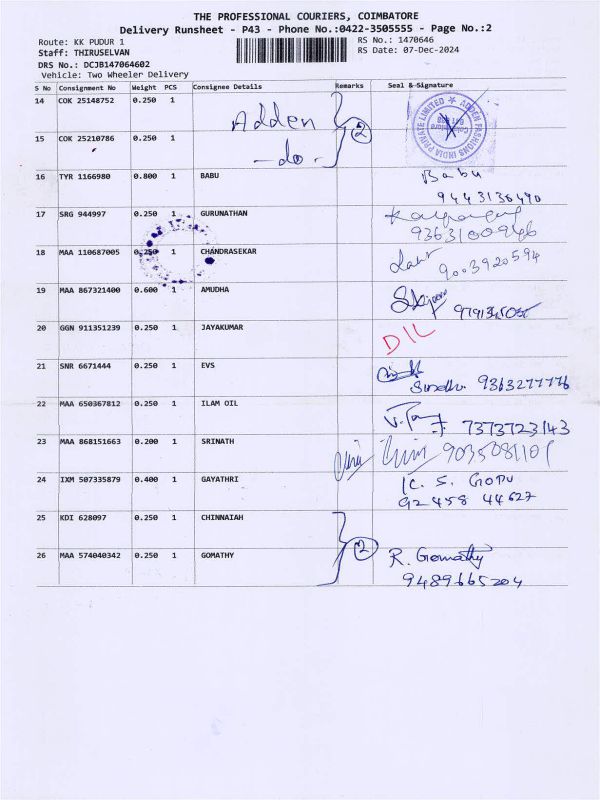 THE PROFESSIONAL COURIERS, COIMBATORE
Delivery Runsheet - P43 - Phone No.:0422-3505555 - Page No.:2
Route: KK PUDUR 1
RS No.: 1470646
Staff: THIRUSELVAN
RS Date: 07-Dec-2024
DRS No.: DCJB147064602
Vehicle: Two Wheeler Delivery
S No Consignment No Weight PCS Consignee Details Remarks Seal & Signature
14 COK 25148752 0.250 1 Adden
15 COK 25210786 0.250 1 - do - 2
ADDEN FASHIONS INDIA PRIVATE LIMITED
Coimbatore
16 TYR 1166980 0.800 1 BABU Babu
9443136490
17 SRG 944997 0.250 1 GURUNATHAN
9363100946
18 MAA 110687005 0.250 1 CHANDRASEKAR
9003920594
19 MAA 867321400 0.600 1 AMUDHA
20 GGN 911351239 0.250 1 JAYAKUMAR D/L
21 SNR 6671444 0.250 1 EVS
Sindhu 9363277776
22 MAA 650367812 0.250 1 ILAM OIL
7373723143
23 MAA 868151663 0.200 1 SRINATH 9035081101
24 IXM 507335879 0.400 1 GAYATHRI K. S. GOPU
92458 44627
25 KDI 628097 0.250 1 CHINNAIAH
26 MAA 574040342 0.250 1 GOMATHY 2 R. Gomathy
9489665204